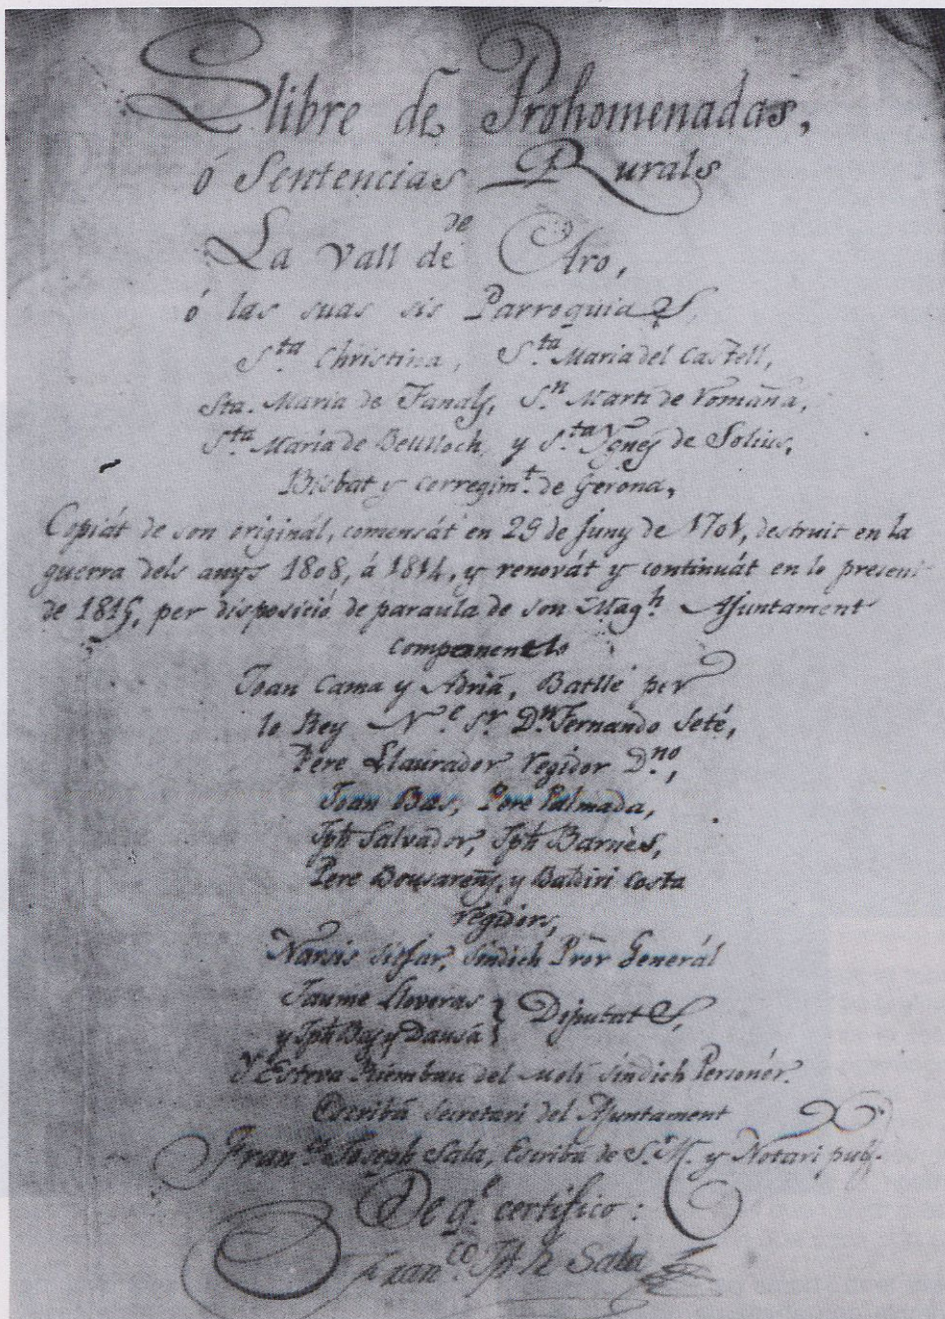 Llibre de Prohomenadas,
ó Sentencias Rurals
de
La Vall de Aro,
ó las suas sis Parroquias,
Sta Christina, Sta Maria del Castell,
Sta. Maria de Fanals, Sn Martí de Romañá,
Sta Maria de Bellloch, y Sta Ygnes de Solius,
Bisbat y Corregimt. de Gerona,
Copiát de son originál, comensát en 29 de Juny de 1701, destruit en la
guerra dels anys 1808, á 1814, y renovát y continuát en lo present
de 1815, per disposició de paraula de son Magh Ajuntament
Componentlo
Joan Cama y Adriá, Batlle per
lo Rey Ne Sr Dn Fernando Seté,
Pere Llaurador Regidor Dno,
Joan Bas, Pere Palmada,
Jph Salvador, Jph Barnès,
Pere y Baldiri Costa
Regidors,
Narsis Sindich Pror Generál
Jaume Lloveras
y Jph Bas y Dausá } Diputats,
Y Esteva Riembau del Molí Sindich Personér.
Escribá Secretari del Ajuntament
Franco Joseph Sala, Escribá de S. M. y Notari
De qe. certifico:
Franco Jph Sala